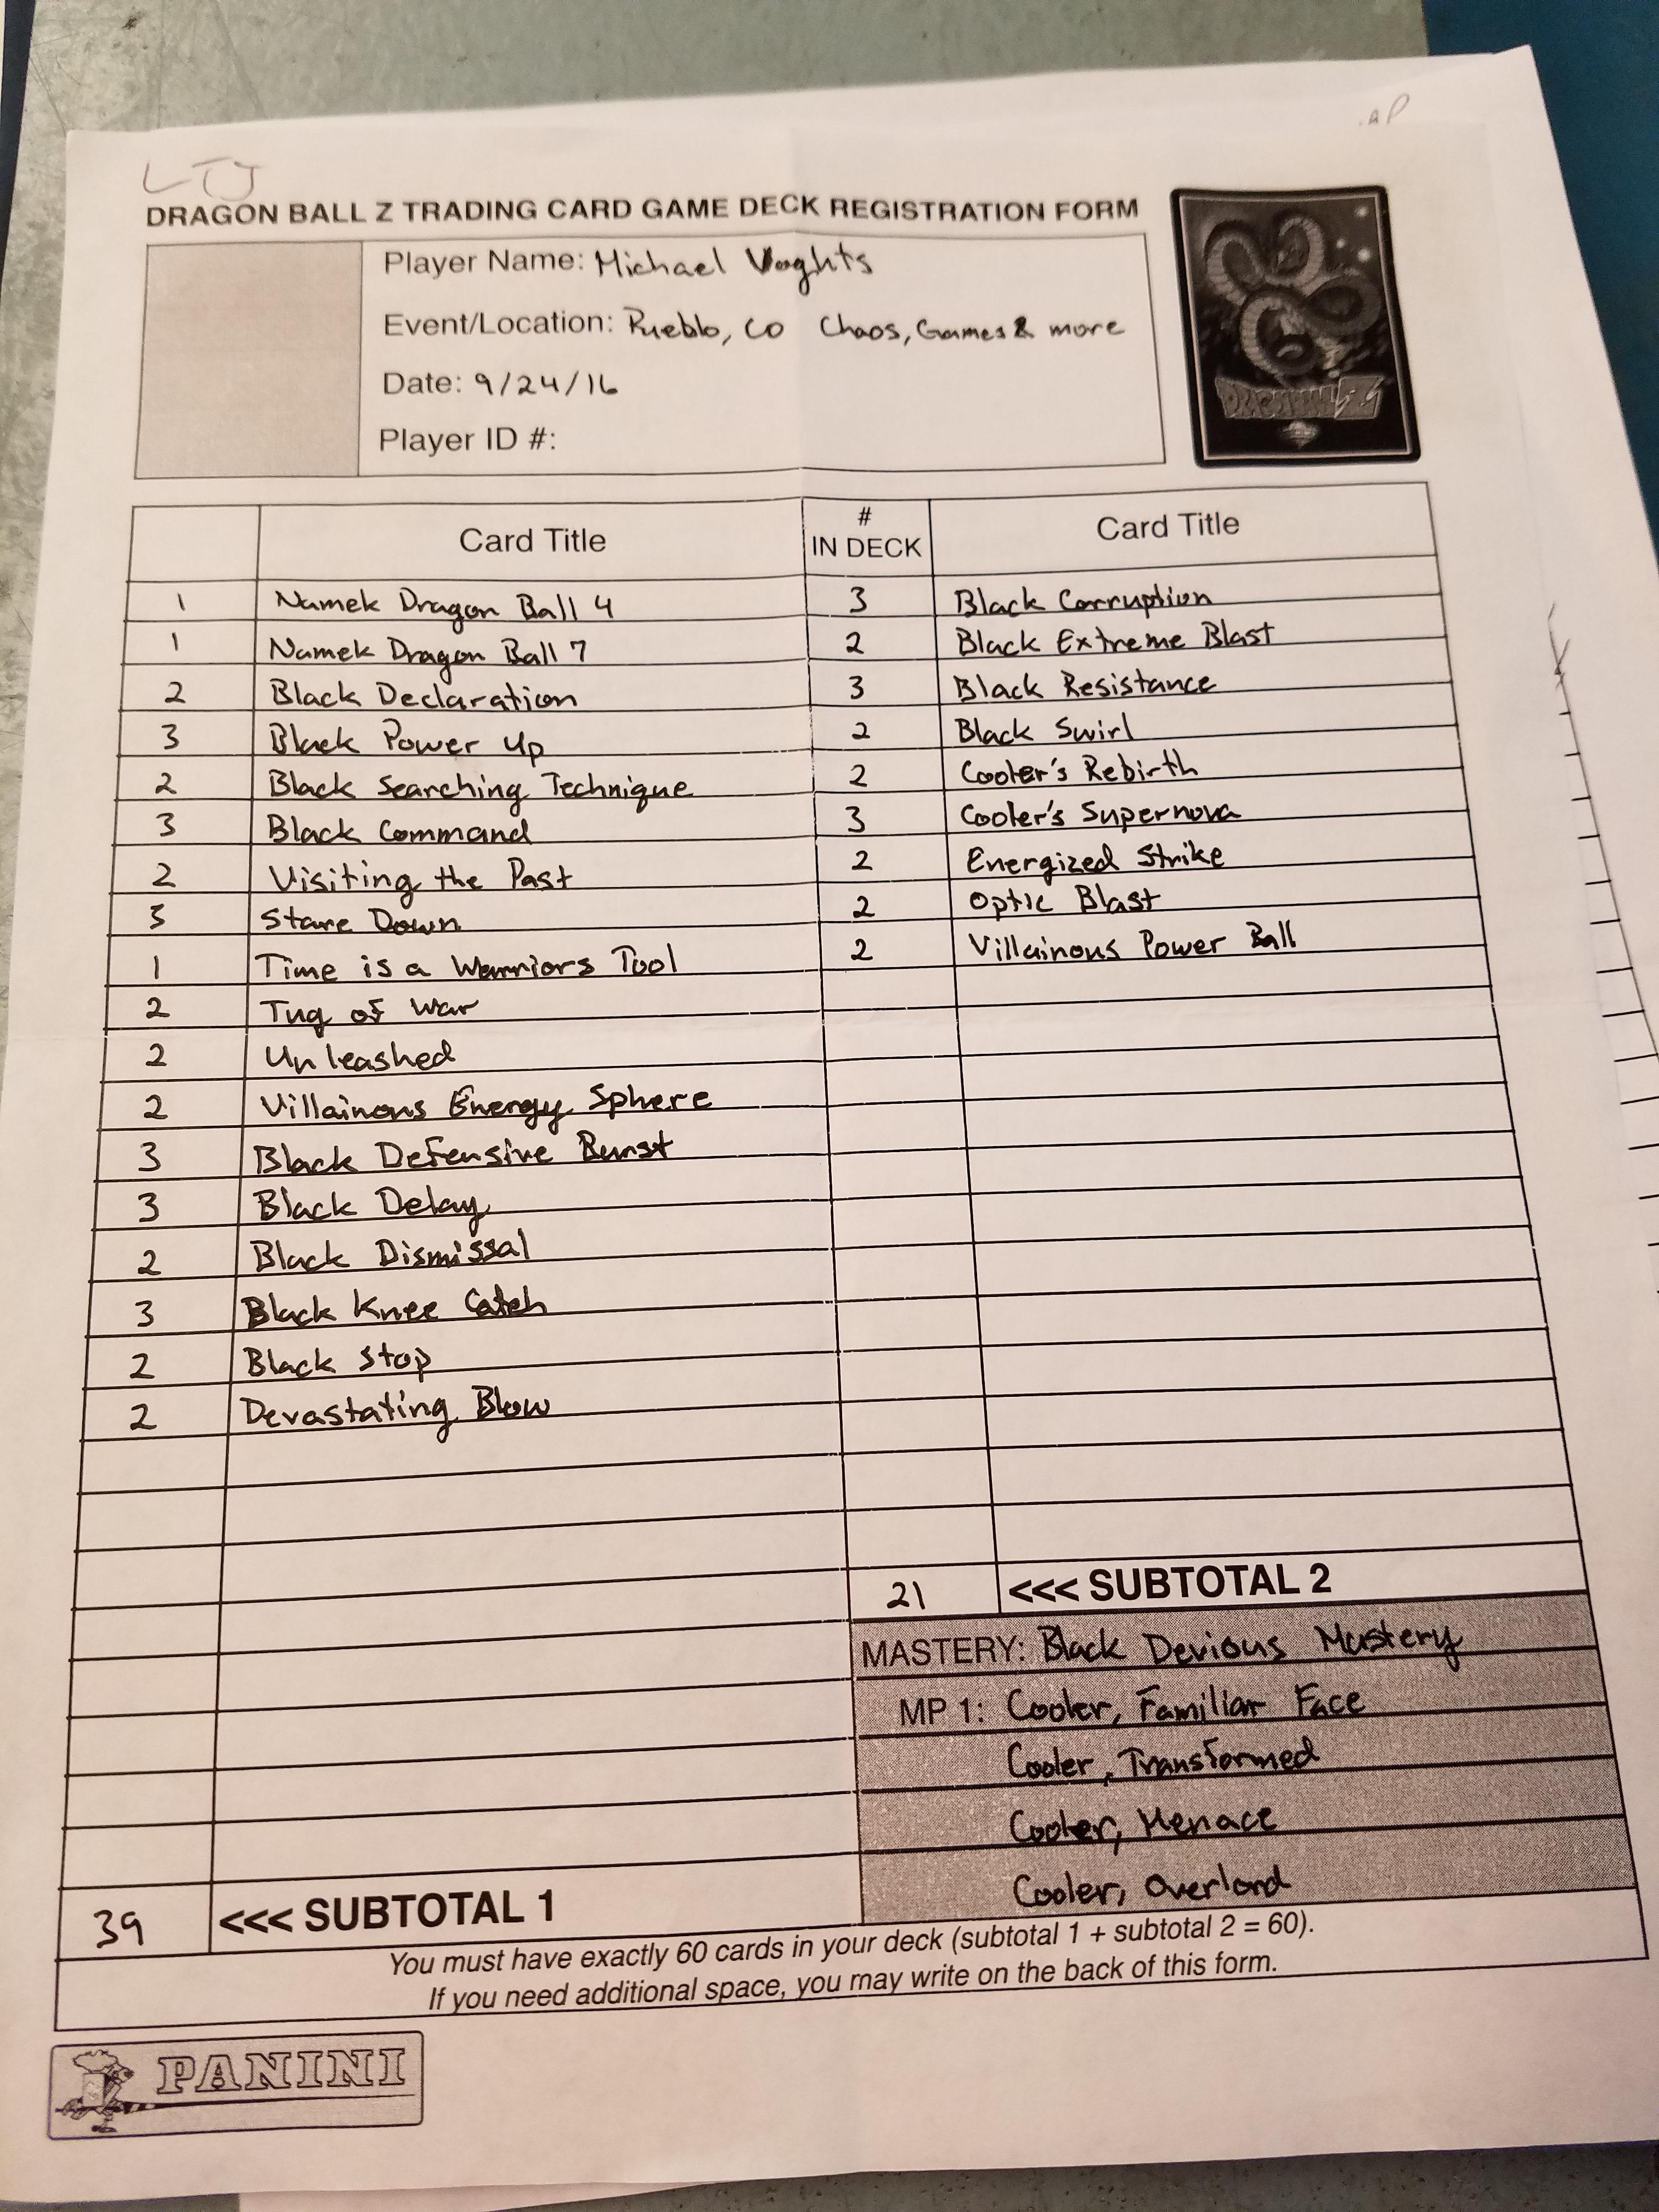 LTJ
DRAGON BALL Z TRADING CARD GAME DECK REGISTRATION FORM
Player Name: Michael Voghts
Event/Location: Pueblo, CO Chaos, Games & more
Date: 9/24/16
Player ID #:
DRAGONBALL Z
Card Title # IN DECK Card Title
1 Namek Dragon Ball 4 3 Black Corruption
1 Namek Dragon Ball 7 2 Black Extreme Blast
2 Black Declaration 3 Black Resistance
3 Black Power Up 2 Black Swirl
2 Black Searching Technique 2 Cooler's Rebirth
3 Black Command 3 Cooler's Supernova
2 Visiting the Past 2 Energized Strike
3 Stare Down 2 Optic Blast
1 Time is a Warriors Tool 2 Villainous Power Ball
2 Tug of War
2 Unleashed
2 Villainous Energy Sphere
3 Black Defensive Burst
3 Black Delay
2 Black Dismissal
3 Black Knee Catch
2 Black Stop
2 Devastating Blow
21 <<< SUBTOTAL 2
MASTERY: Black Devious Mastery
MP 1: Cooler, Familiar Face
Cooler, Transformed
Cooler, Menace
Cooler, Overlord
39 <<< SUBTOTAL 1
You must have exactly 60 cards in your deck (subtotal 1 + subtotal 2 = 60).
If you need additional space, you may write on the back of this form.
PANINI